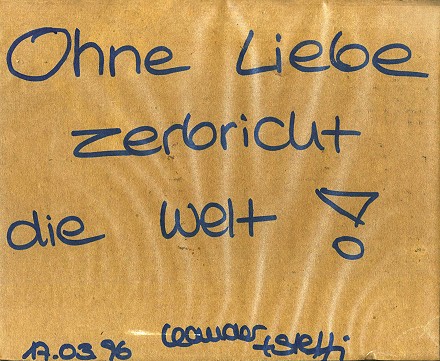 Ohne Liebe
zerbricht
die Welt!
17.03.96 Leander + Steffi